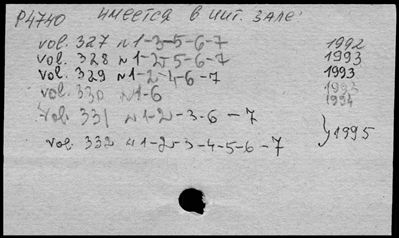 P4740 имеется в чит. зале.
vol. 327 N1-3-5-6-7 1992
vol. 328 N1-2-5-6-7 1993
vol. 329 N1-2-4-6-7 1993
vol. 330 N1-6 1993
1994
vol. 331 N1-2-3-6-7
vol. 332 N1-2-3-4-5-6-7 } 1995